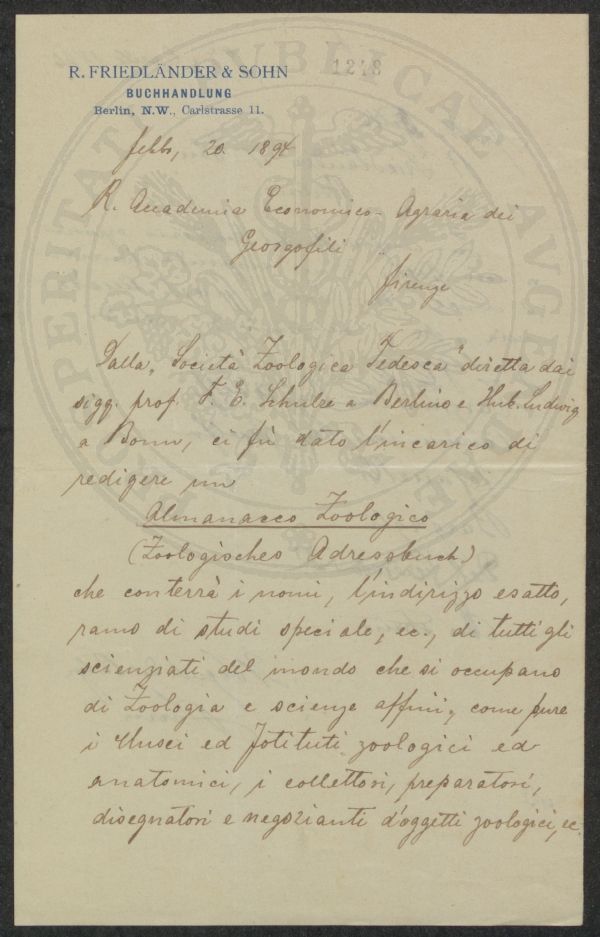 R. FRIEDLÄNDER & SOHN
1278
BUCHHANDLUNG
Berlin, N.W., Carlstrasse 11.
febb, 20 1894
R. Accademia Economico-Agraria dei
Georgofili
Firenze
Dalla „Società Zoologica Tedesca" diretta dai
sigg. prof. F. E. Schulze a Berlino e Hub. Ludwig
a Bonn, ci fù dato l'incarico di
redigere un
Almanacco Zoologico
(Zoologisches Adressbuch)
che conterrà i nomi, l'indirizzo esatto,
ramo di studi speciale, ec., di tutti gli
scienziati del mondo che si occupano
di Zoologia e scienze affini, come pure
i Musei ed Istituti zoologici ed
anatomici, i collettori, preparatori,
disegnatori e negozianti d'oggetti zoologici, ec.
PROSPERITATI PVBLICAE AVGENDAE